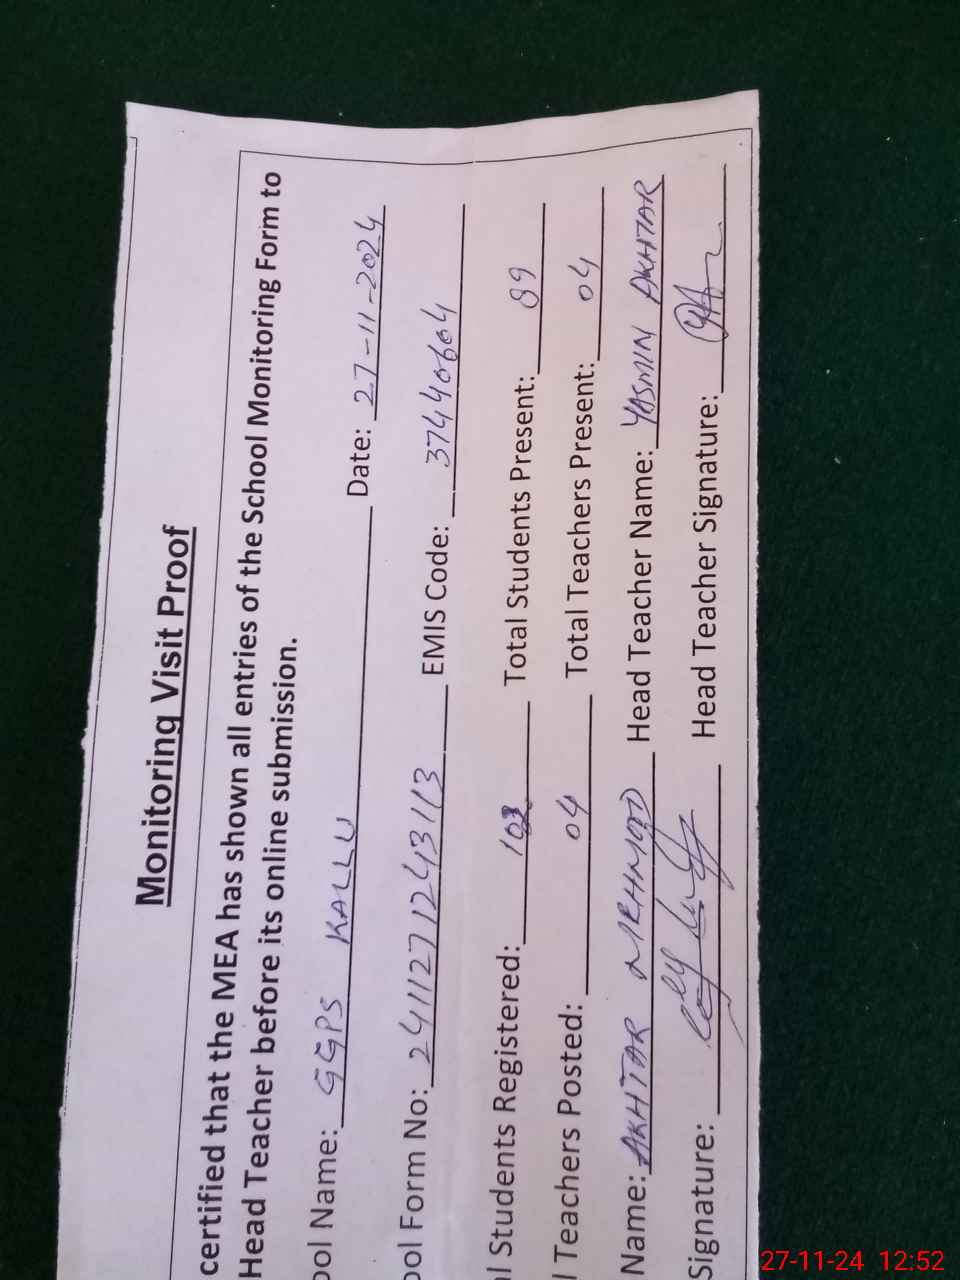 Monitoring Visit Proof
certified that the MEA has shown all entries of the School Monitoring Form to
Head Teacher before its online submission.
ool Name: GGPS KALLU Date: 27-11-2024
ool Form No: 2411271243113 EMIS Code: 37440604
l Students Registered: 103 Total Students Present: 89
l Teachers Posted: 04 Total Teachers Present: 04
Name: AKHTAR MEHMOOD Head Teacher Name: YASMIN AKHTAR
Signature: Head Teacher Signature:
27-11-24 12:52